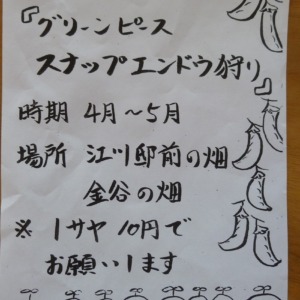 『グリーンピース
スナップエンドウ狩り』
時期 4月〜5月
場所 江川邸前の畑
金谷の畑
※ 1サヤ 10円で
お願いします